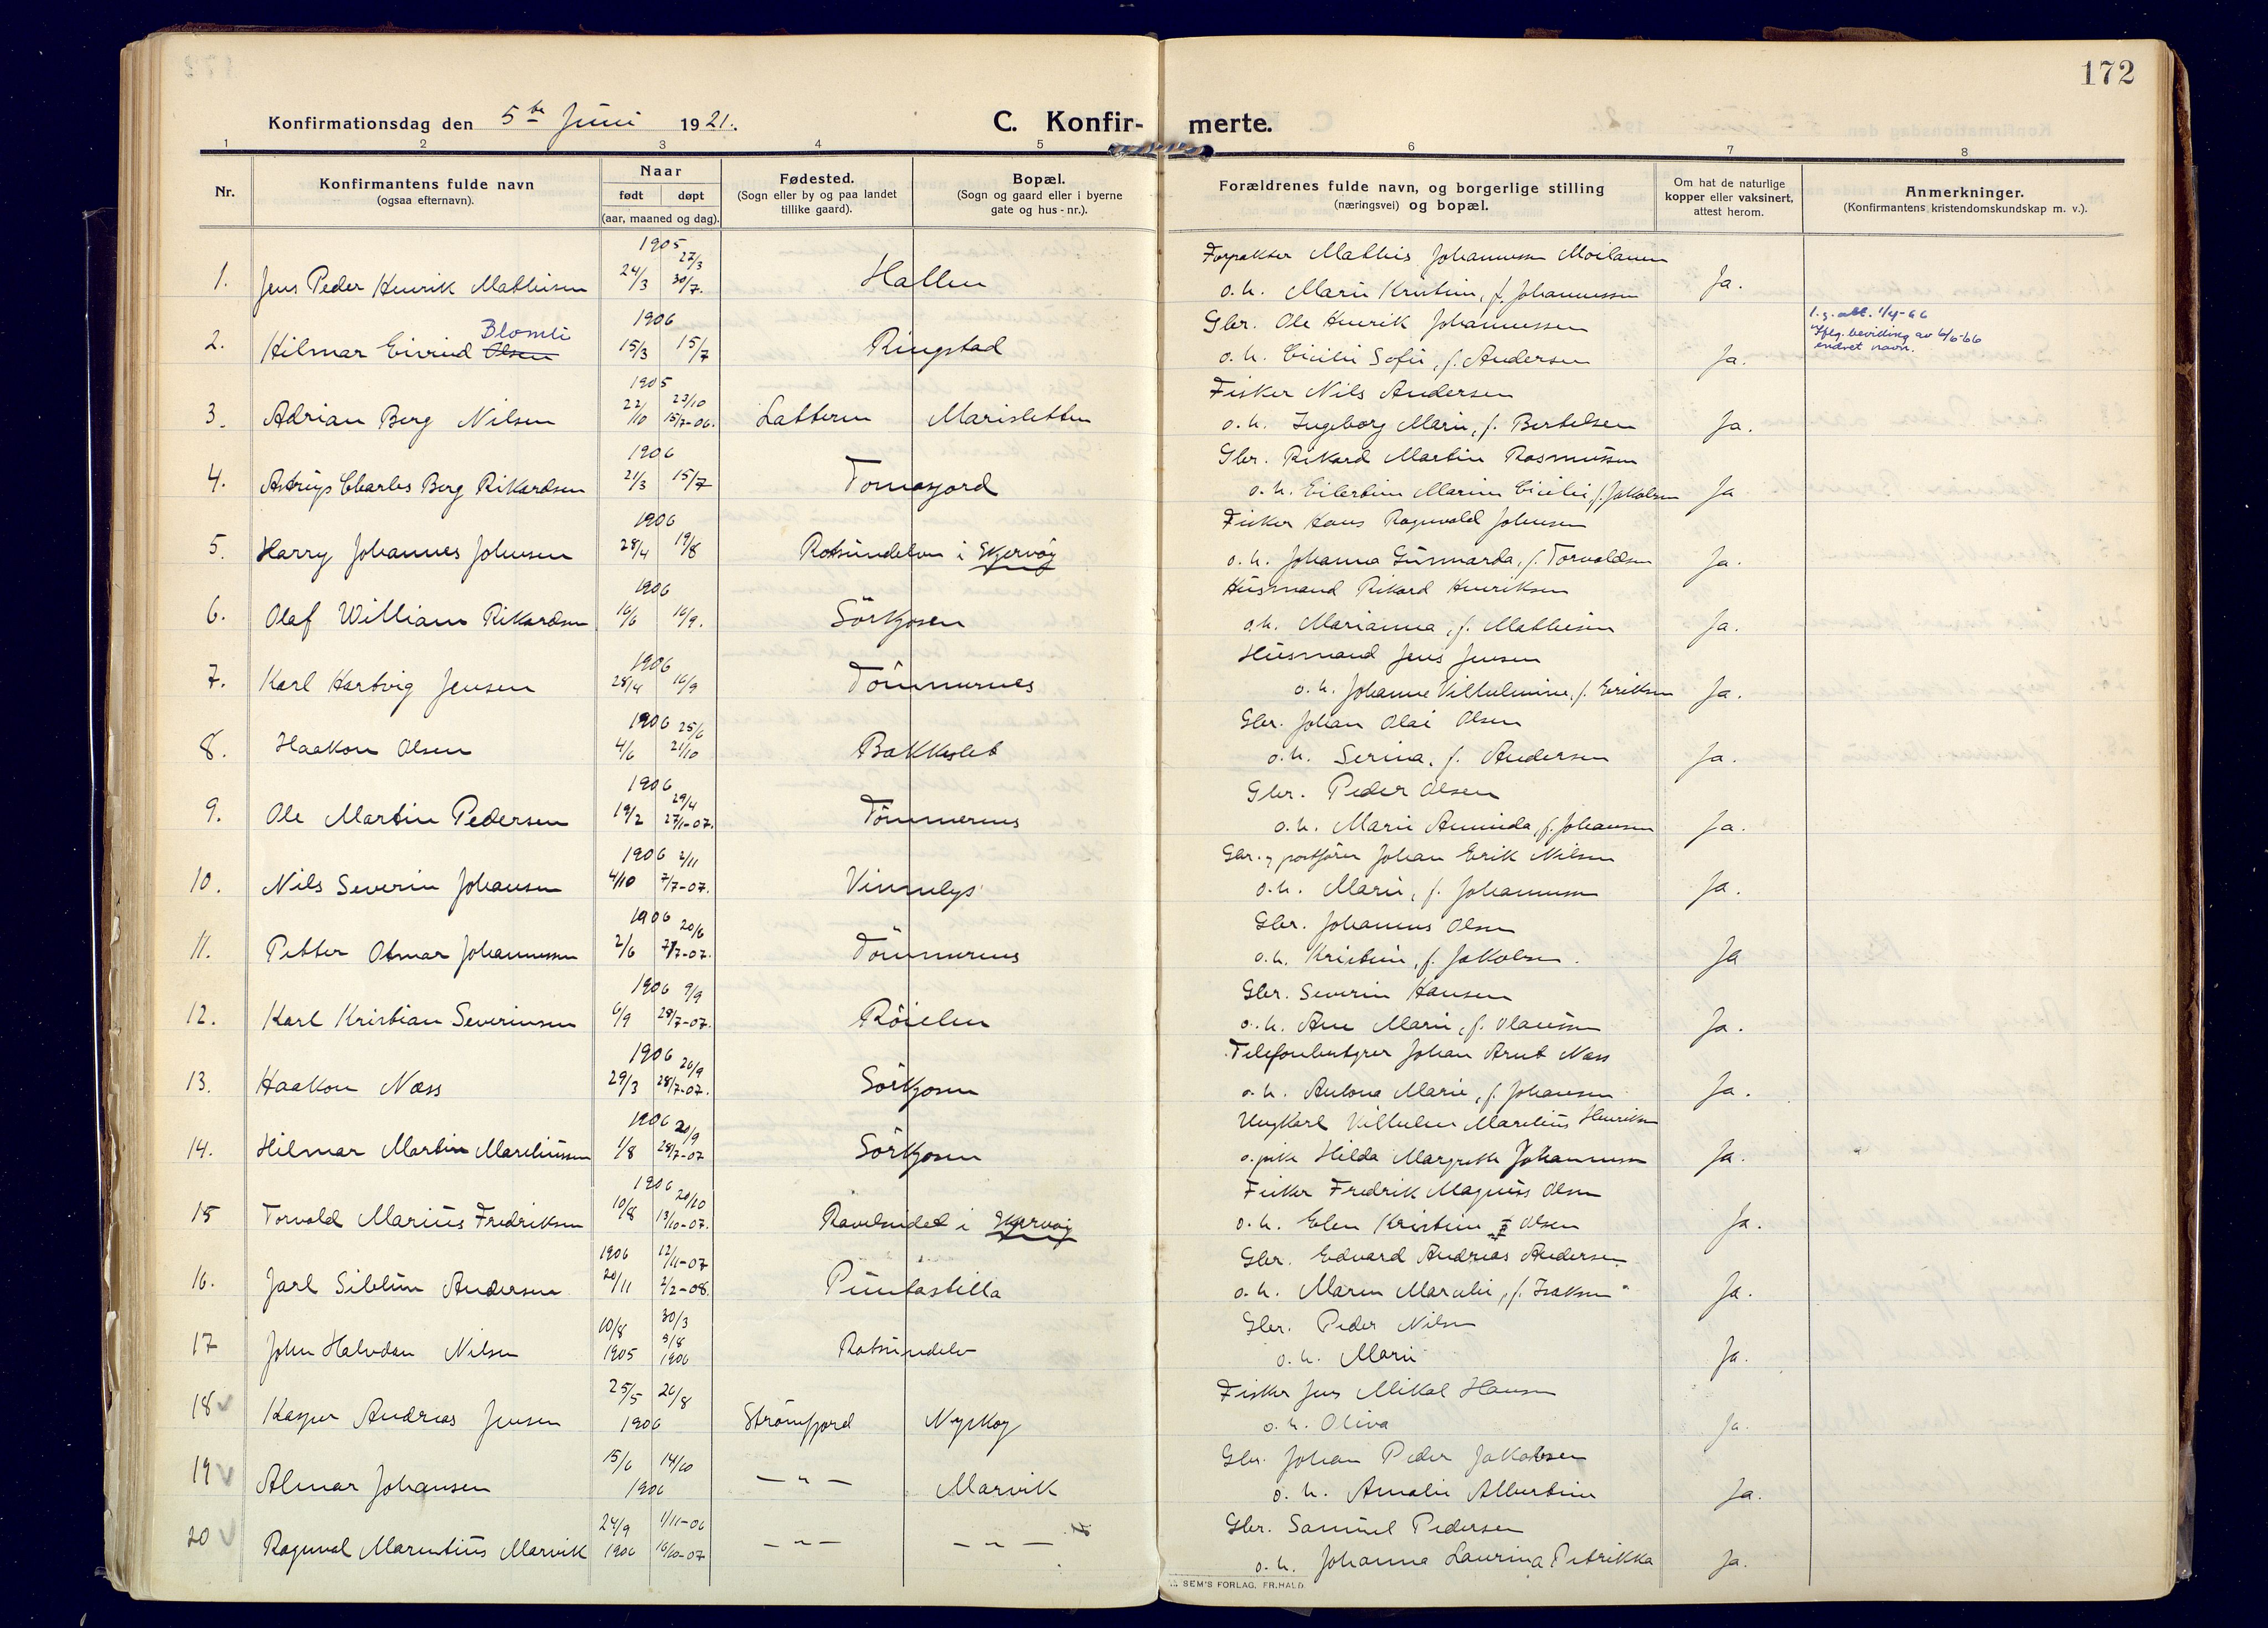 172
Konfirmationsdag den 5te Juni 1921.
C. Konfirmerte.
1 2 3 4 5 6 7 8
Nr.
Konfirmantens fulde navn
(ogsaa efternavn).
Naar
født døpt
(aar, maaned og dag).
Fødested.
(Sogn eller by og paa landet
tillike gaard).
Bopæl.
(Sogn og gaard eller i byerne
gate og hus-nr.).
Forældrenes fulde navn, og borgerlige stilling
(næringsvei) og bopæl.
Om hat de naturlige
kopper eller vaksinert,
attest herom.
Anmerkninger.
(Konfirmantens kristendomskundskap m. v.).
1905
27/3
Forpakter Mathis Johannessen Moilanen
1. Jens Peder Henrik Mathisen 24/3 30/7. Hallen o. h. Marie Kristine, f. Johannessen Ja.
Blomli 1906
Gbr. Ole Henrik Johannessen
2. Hilmar Eivind Olsen 15/3 15/7 Ringstad o. h. Cicilie Sofie, f. Andersen Ja.
1/4-66
Iflg. bevilling av 6/6-66
endret navn.
1905
23/10
Fisker Nils Andersen
3. Adrian Berg Nilsen 22/10 15/7-06. Latteren Marisletten o. h. Ingeborg Marie, f. Bertelsen Ja.
1906
Gbr. Rikard Martin Rasmussen
4. Charles Berg Rikardsen 21/3 15/7 Tomasjord o. h. Eilertine Marine Cicilie, f. Jakobsen Ja
1906
Fisker Hans Ragnvald Johnsen
5. Harry Johannes Johnsen 28/4 19/8 Rotsundelven i Skjervøy o. h. Johanna Gunnarda, f. Torvaldsen Ja.
1906
Husmand Rikard Henriksen
6. Olaf William Rikardsen 16/6 16/9. Sörkjosen o. h. Marianna, f. Mathisen Ja.
1906
Husmand Jens Jensen
7. Karl Hartvig Jensen 28/4 16/9 Tömmernes o. h. Johanne Vilhelmine, f. Eriksen Ja.
1906 25/6
Gbr. Johan Olai Olsen
8. Haakon Olsen 4/6 21/10 Bakkeslet o. h. Serina, f. Andersen Ja.
1906
29/4
Gbr. Peder Olsen
9. Ole Martin Pedersen 19/2 27/1-07. Tömmernes o. h. Marie Aminda, f. Johansen Ja.
1906 2/11
Gbr. og postfører Johan Erik Nilsen
10. Nils Severin Johansen 4/10 7/7-07. Vinnelys o. h. Marie, f. Johannessen Ja.
1906 20/6
Gbr. Johannes Olsen
11. Petter Otmar Johannessen 2/6 7/7-07. Tömmernes o. h. Kristine, f. Jakobsen. Ja
1906 9/9
Gbr. Severin Hansen
12. Karl Kristian Severinsen 6/9 28/7-07. Röielen o. h. Ane Marie, f. Olaussen Ja.
1906 20/9
Telefonbestyrer Johan Arnt Næss
13. Haakon Næss 29/3 28/7-07. Sörkjosen o. h. Antona Marie, f. Johansen Ja.
1906 20/9
Ungkarl Vilhelm Marelius Henriksen
14. Hilmar Martin Mareliussen 1/8 28/7-07 Sörkjosen o. pike Hilda Margrethe Johannessen Ja.
1906 20/10
Fisker Fredrik Magnus Olsen
15 Torvald Marius Fredriksen 10/8 13/10-07. i Skjervøy o. h. Elen Kristine Olsen Ja.
1906 12/11-07
Gbr. Edvard Andreas Andersen
16. Jarl Andersen 20/11 2/2-08. Puntastilla o. h. Maren Marelie, f. Isaksen Ja.
10/8 30/3
Gbr. Peder Nilsen
17 John Halvdan Nilsen 1905 9/8 1906 Rotsundelv o. h. Marie Ja.
25/5 26/8
Fisker Jens Mikal Hansen
18 Kasper Andreas Jensen 1906 Strömfjord Nyskog o. h. Oliva Ja.
15/6 14/10
Gbr. Johan Peder Jakobsen
19 Almar Johansen 1906 — " — Marvik o. h. Amalie Albertine Ja.
24/9 1/11-06
Gbr. Samuel Pedersen
20 Ragnval Marentius Marvik 1906 16/10-07 — " — — " — o. h. Johanna Laurina Petrikka Ja.
SEM'S FORLAG, FR.HALD.